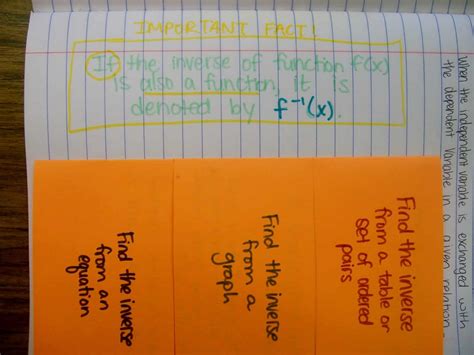 IMPORTANT FACT!
If the inverse of function f(x)
is also a function, it is
denoted by f⁻¹(x).
When the independent variable is exchanged with
the dependent variable in a given relation
Find the inverse
from a table or
set of ordered
pairs
Find the inverse
from a
graph
Find the inverse
from an
equation